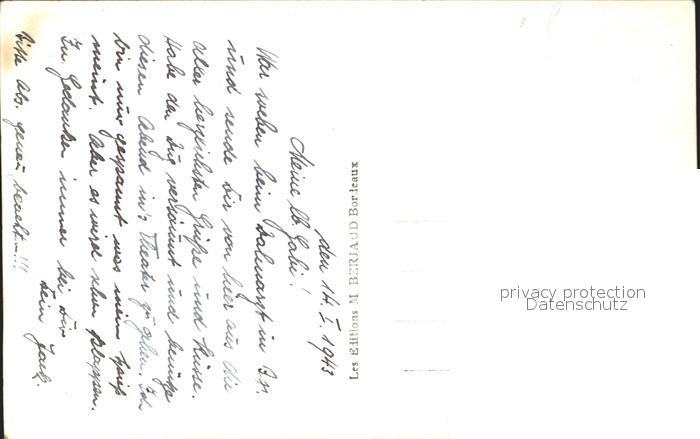 den 14. I. 1943
Meine lb. Gabi!
War soeben beim Zahnarzt in B.
und sende dir von hier aus die
allerherzlichsten Grüße und Küsse.
Habe den Zug versäumt und benütze
diesen Abend in's Theater zu gehen. Ich
bin nur gespannt was mein Spieß
meint. Aber es wird schon klappen.
In Gedanken immer bei Dir
Dein
Bitte Abs. genau beachten!!!
Les Editions M BERJAUD Bordeaux
privacy protection
Datenschutz